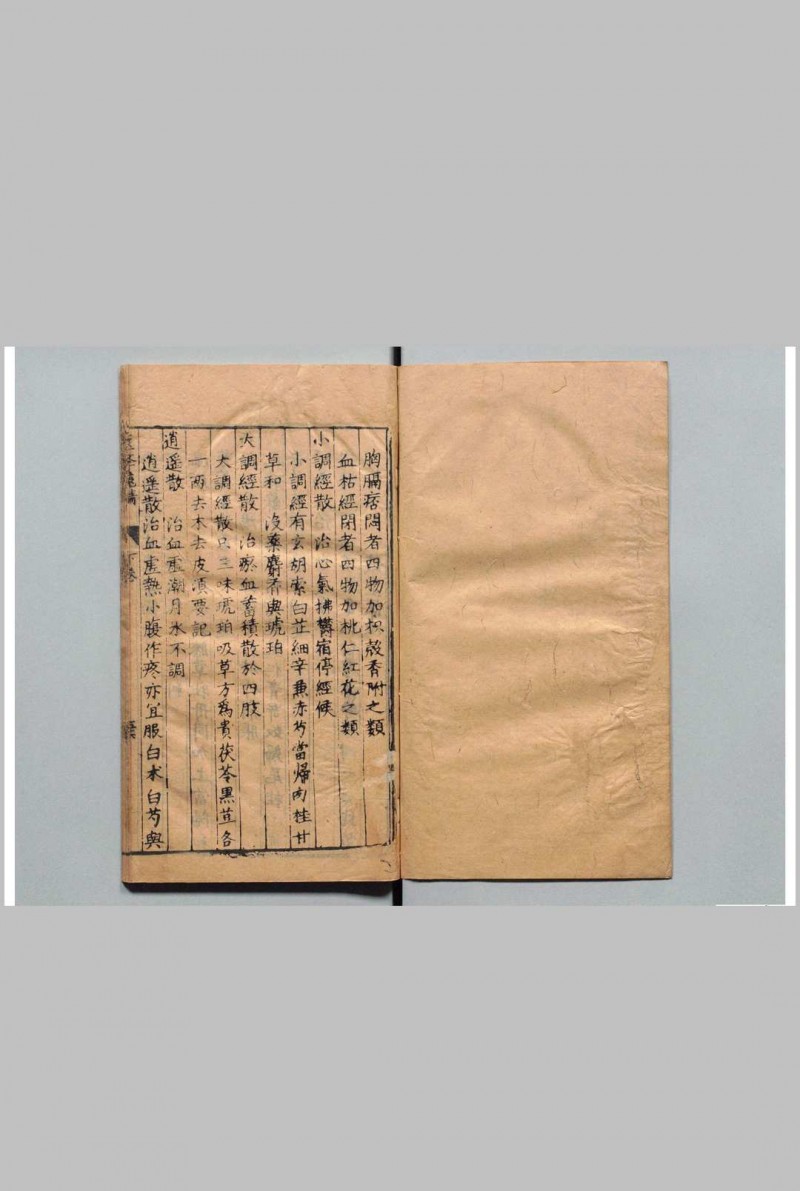 胸膈痞悶者四物加枳殼香附之類
血枯經閉者四物加桃仁紅花之類
小調經散 治心氣拂鬱宿停經候
小調經有玄胡索白芷細辛兼赤芍當歸肉桂甘
草和 沒藥麝香與琥珀
大調經散 治瘀血蓄積散於四肢
大調經散只三味琥珀吸草方為貴茯苓黑荳各
一兩去木去皮須要記
逍遙散 治血虛潮月水不調
逍遙散治血虛熱小腹作疼亦宜服白朮白芍與
下卷